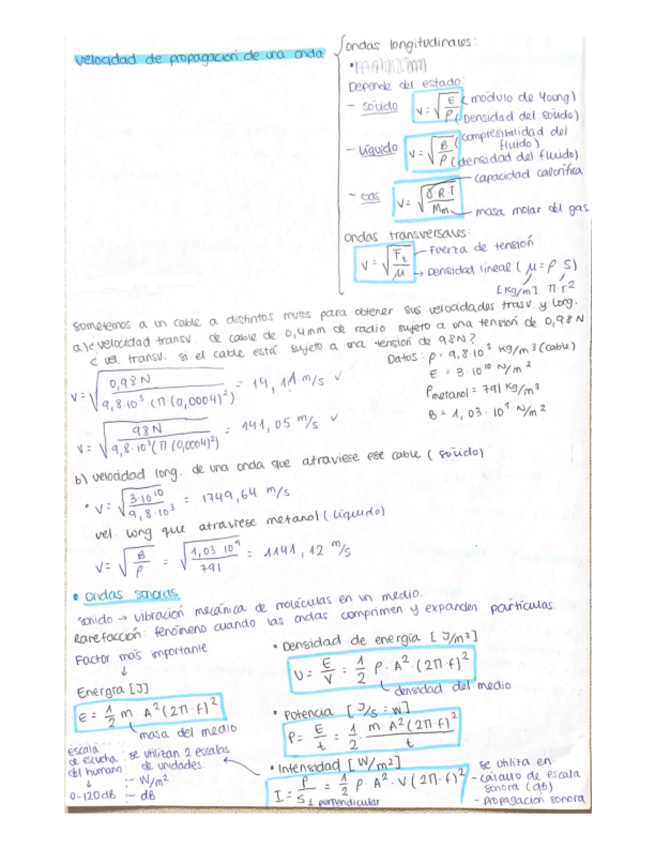 velocidad de propagación de una onda
ondas longitudinales:
Depende del estado:
- sólido v = √(E/ρ) (módulo de Young) (Densidad del sólido)
- líquido v = √(B/ρ) (compresibilidad del fluido) (densidad del fluido)
- Gas v = √(γ·R·T/Mm) capacidad calorífica
masa molar del gas
ondas transversales:
v = √(Ft/μ) → Fuerza de tensión
→ Densidad lineal (μ = ρ S)
[kg/m] π r²
Sometemos a un cable a distintos mutos para obtener sus velocidades trasv. y long.
a) ¿velocidad transv. de cable de 0,4mm de radio sujeto a una tensión de 0,98N
¿ vel. transv. si el cable está sujeto a una tensión de 98N?
Datos: ρ = 9,8·10³ kg/m³ (cable)
E = 3·10¹⁰ N/m²
ρmetanol = 791 kg/m³
B = 1,03·10⁹ N/m²
v = √(0,98N / 9,8·10³·(π·(0,0004)²)) = 14,11 m/s ✓
v = √(98N / 9,8·10³(π(0,0004)²)) = 141,05 m/s ✓
b) velocidad long. de una onda que atraviese ese cable (sólido)
• v = √(3·10¹⁰ / 9,8·10³) = 1749,64 m/s
vel long que atraviese metanol (líquido)
v = √(B/ρ) = √(1,03·10⁹ / 791) = 1141,12 m/s
• ondas sonoras
sonido → vibración mecánica de moléculas en un medio.
Rarefacción: fenómeno cuando las ondas comprimen y expanden partículas.
Factor más importante
↓
Energía [J]
E = 1/2 m·A²(2π·f)²
masa del medio
• Densidad de energía [J/m³]
U = E/V = 1/2 ρ·A²·(2π·f)²
densidad del medio
• Potencia [J/s = W]
P = E/t = 1/2· m·A²(2π·f)²/t
escala de escucha del humano
↓
0-120dB
se utilizan 2 escalas de unidades:
- W/m²
- dB
• Intensidad [W/m²]
I = P/S⊥ = 1/2 ρ·A²·v(2π·f)²
perpendicular
se utilita en
- cálculo de escala sonora (dB)
- propagación sonora